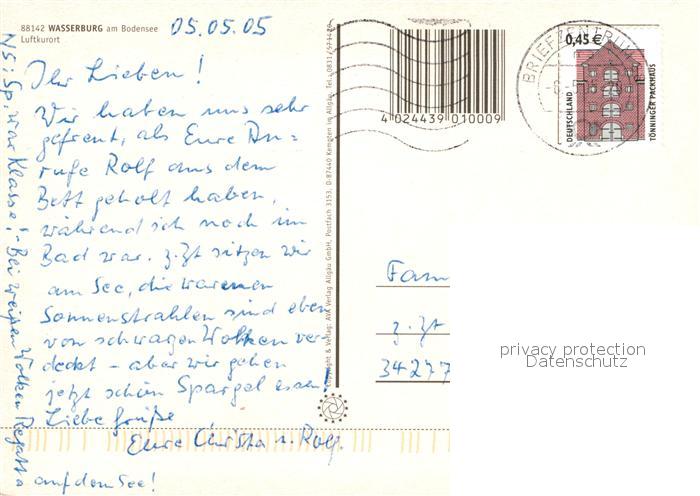 88142 WASSERBURG am Bodensee
Luftkurort
05.05.05
Ihr Lieben!
Wir haben uns sehr
gefreut, als Eure An=
rufe Rolf aus dem
Bett geholt haben,
während ich noch im
Bad war. z.Zt sitzen wir
am See, die warmen
Sonnenstrahlen sind eben
von schwarzen Wolken ver-
deckt - aber wir gehen
jetzt schön Spargel essen!
Liebe Grüße
Eure Christa u. Rolf.
NS: Sp. war Klasse! - Bei weißen Wolken Regatta
auf dem See!
Copyright & Verlag: AVA Verlag Allgäu GmbH, Postfach 3153, D-87440 Kempten im Allgäu, Tel.: 0831/
4 024439 010009
BRIEFZENTRUM
0,45 €
DEUTSCHLAND
TÖNNINGER PACKHAUS
Fam
z.Zt
34277
privacy protection
Datenschutz